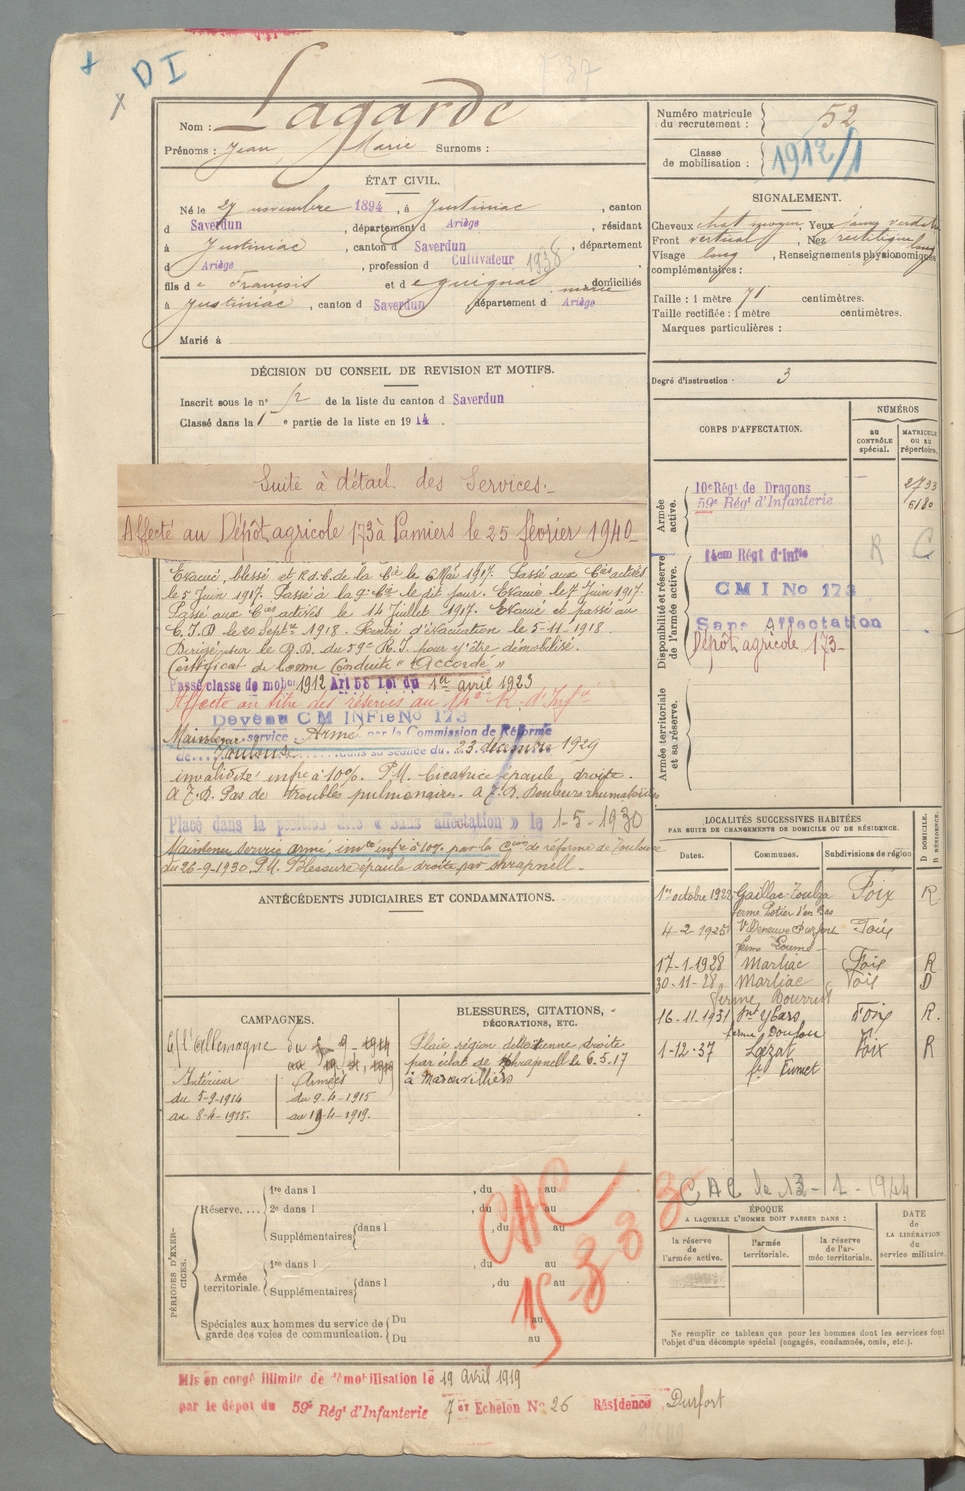 + DI
x
Nom : Lagarde
Prénoms : Jean Marie Surnoms :
Numéro matricule du recrutement : 52
Classe de mobilisation : 1912/1
ÉTAT CIVIL.
Né le 27 novembre 1894, à Justiniac, canton
d Saverdun, département d Ariège, résidant
à Justiniac, canton d Saverdun, département
d Ariège, profession d Cultivateur 1938
fils de François et d eguignac marie domiciliés
à Justiniac, canton d Saverdun département d Ariège
Marié à
SIGNALEMENT.
Cheveux chat moyen Yeux
Front vertical, Nez rectiligne long
Visage long, Renseignements physionomiques
complémentaires :
Taille : 1 mètre 71 centimètres.
Taille rectifiée : 1 mètre centimètres.
Marques particulières :
Degré d'instruction : 3
DÉCISION DU CONSEIL DE REVISION ET MOTIFS.
Inscrit sous le n° 52 de la liste du canton d Saverdun
Classé dans la 1re partie de la liste en 1914.
Suite à détail des Services.-
Affecté au Dépôt agricole 173 à Pamiers le 25 février 1940-
Evacué, blessé et R.d.C. de la Cie le 6 Mai 1917. Passé aux Cies actives
le 5 Juin 1917. Passé à la 9e Cie le dit jour. Evacué le 7 Juin 1917.
Passé aux Cies actives le 14 Juillet 1917. Evacué et passé au
C.I.D le 20 Septbre 1918. Rentré d'évacuation le 5-11-1918.
Dirigé sur le D.D. du 59e R.I. pour y être démobilisé.
Certificat de bonne Conduite "Accordé"
Passé classe de mobon 1912 Art 58 Loi du 1er avril 1923
Affecté au titre des réserves au 14e R. d'Infie
Devenu CM INFie No 173
Maintenu service Armé par la Commission de Réforme
de Toulouse dans sa séance du 23 décembre 1929
invalidité infre à 10%. P.M. Cicatrice épaule droite.
A.T.B. Pas de troubles pulmonaires. A.T.B. Douleurs rhumatoïdes
Placé dans la position dite « Sans affectation » le 1-5-1930
Maintenu service armé, invté infre à 10% par la Cion de réforme de Toulouse
du 26-9-1930. P.M. Blessure épaule droite par shrapnell.
CORPS D'AFFECTATION.
NUMÉROS
AU CONTRÔLE spécial.
MATRICULE OU AU répertoire.
Armée active.
10e Régt de Dragons 2733
59e Régt d'Infanterie 5180
Disponibilité et réserve de l'armée active.
14em Régt d'Infie R C
CMI No 173
Sans Affectation
Dépôt agricole 173-
Armée territoriale et sa réserve.
LOCALITÉS SUCCESSIVES HABITÉES
PAR SUITE DE CHANGEMENTS DE DOMICILE OU DE RÉSIDENCE.
Dates. Communes. Subdivisions de région D DOMICILE. R RÉSIDENCE.
1er octobre 1922 Gaillac-Toulza Foix R
4-2-1925 Villeneuve Durfort Foix
17-1-1928 Marliac Foix R
30-11-28 Marliac Foix D
ferme Bourrust
16-11-1931 Foix R.
1-12-37 Lézat Foix R
CAC le 13-1-1944
ANTÉCÉDENTS JUDICIAIRES ET CONDAMNATIONS.
CAMPAGNES.
c/ l'Allemagne du 5-9-1914
au 19-4-1919
Intérieur Armées
du 5-9-1914 du 9-4-1915
au 8-4-1915. au 19-4-1919.
BLESSURES, CITATIONS, DÉCORATIONS, ETC.
Plaie région deltoïdienne droite
par éclat de shrapnell le 6.5.17
à
PÉRIODES D'EXERCICES.
Réserve....
1re dans l , du au
2e dans l , du au
Supplémentaires dans l , du au
Armée territoriale.
1re dans l , du au
Supplémentaires dans l , du au
Spéciales aux hommes du service de garde des voies de communication. Du au
Du au
CAC
ÉPOQUE
A LAQUELLE L'HOMME DOIT PASSER DANS :
la réserve de l'armée active.
l'armée territoriale.
la réserve de l'armée territoriale.
DATE de LA LIBÉRATION du service militaire.
Ne remplir ce tableau que pour les hommes dont les services font
l'objet d'un décompte spécial (engagés, condamnés, omis, etc.).
Mis en congé illimité de démobilisation le 19 Avril 1919
par le dépot du 59e Régt d'Infanterie 7er Echelon No 26 Résidence Durfort